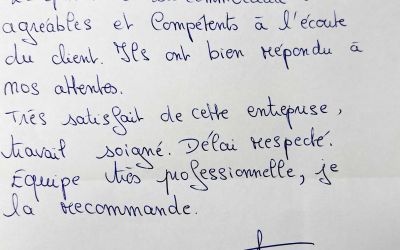 agréables et Compétents à l'écoute
du client. Ils ont bien répondu à
nos attentes.
Très satisfait de cette entreprise,
travail soigné. Délai respecté.
Équipe très professionnelle, je
la recommande.